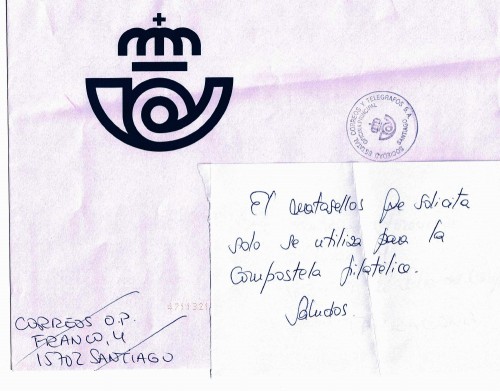 SOCIEDAD ESTATAL CORREOS Y TELEGRAFOS S.A.
OFICINA PRINCIPAL
El matasellos que solicita
solo se utiliza para la
Compostela filatélica.
Saludos.
4711321
CORREOS O.P.
FRANCO, 4
15702 SANTIAGO